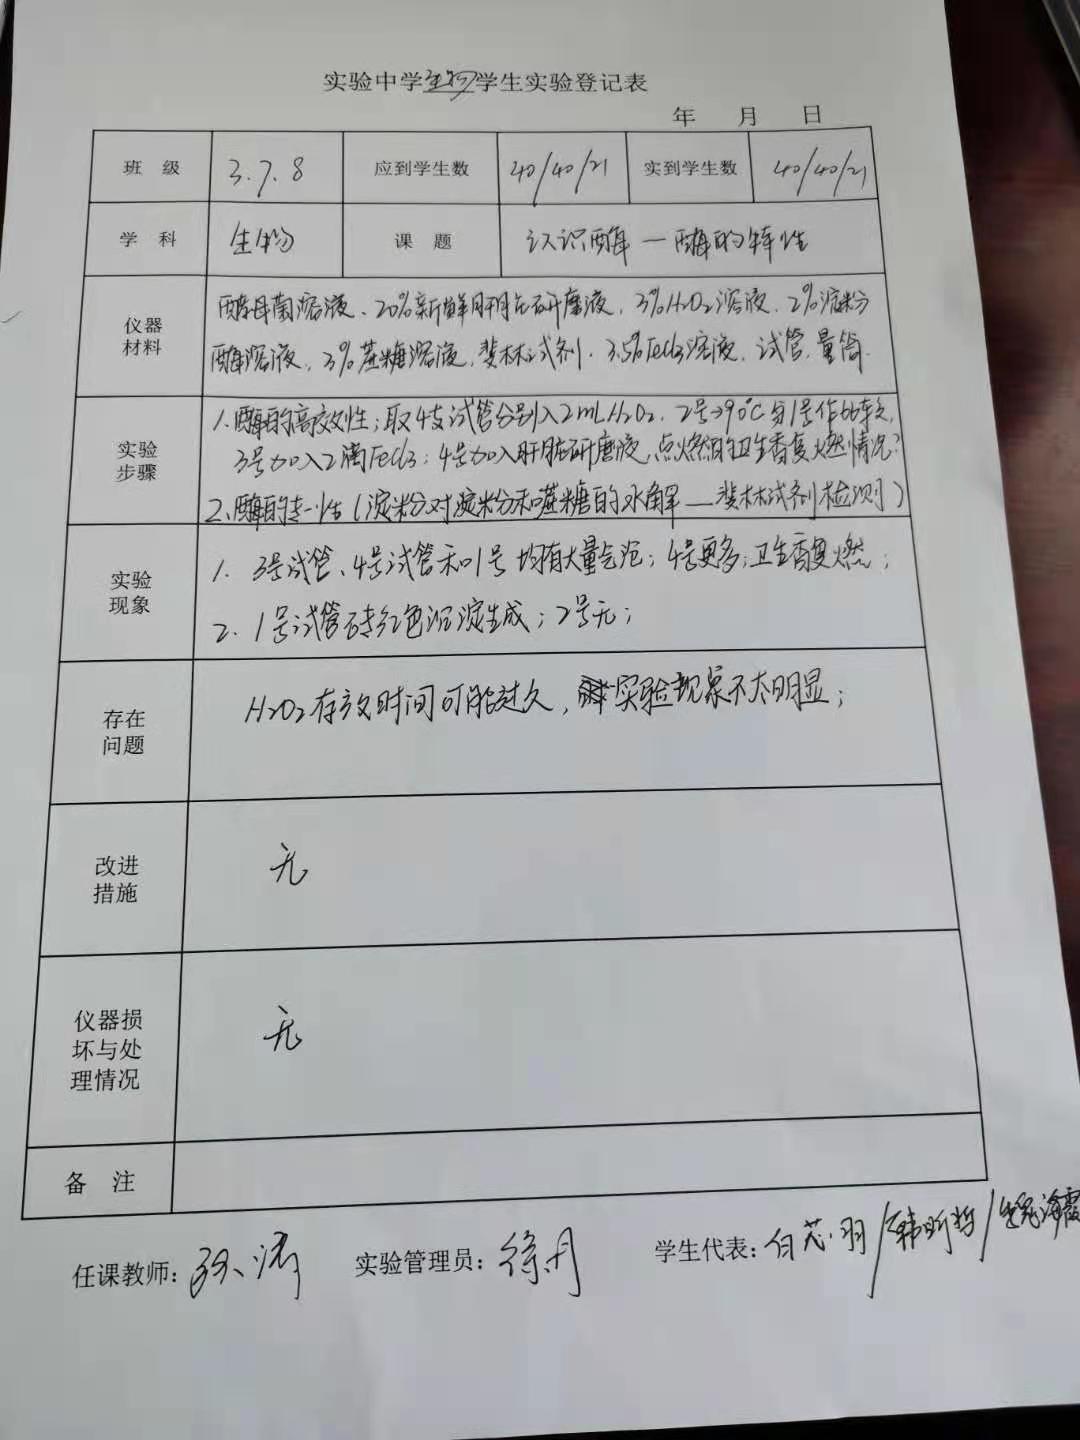 实验中学生物学生实验登记表
年 月 日
班 级 3.7.8 应到学生数 40/40/21 实到学生数 40/40/21
学 科 生物 课 题 认识酶—酶的特性
仪器
材料
酵母菌溶液、20%新鲜肝脏研磨液,3%H2O2溶液,2%淀粉
酶溶液,3%蔗糖溶液,斐林试剂.3.5%FeCl3溶液,试管,量筒.
实验
步骤
1.酶的高效性;取4支试管分别入2mLH2O2.2号→90℃与1号作比较,
3号加入2滴FeCl3;4号加入肝脏研磨液,点燃的卫生香复燃情况?
2.酶的专一性(淀粉对淀粉和蔗糖的水解—斐林试剂检测)
实验
现象
1. 3号试管、4号试管和1号均有大量气泡;4号更多;卫生香复燃;
2. 1号试管砖红色沉淀生成;2号无;
存在
问题
H2O2存放时间可能过久,实验现象不太明显;
改进
措施
无
仪器损
坏与处
理情况
无
备 注
任课教师: 孙涛 实验管理员: 徐丹 学生代表: 白芯羽/韩昕哲/海霞